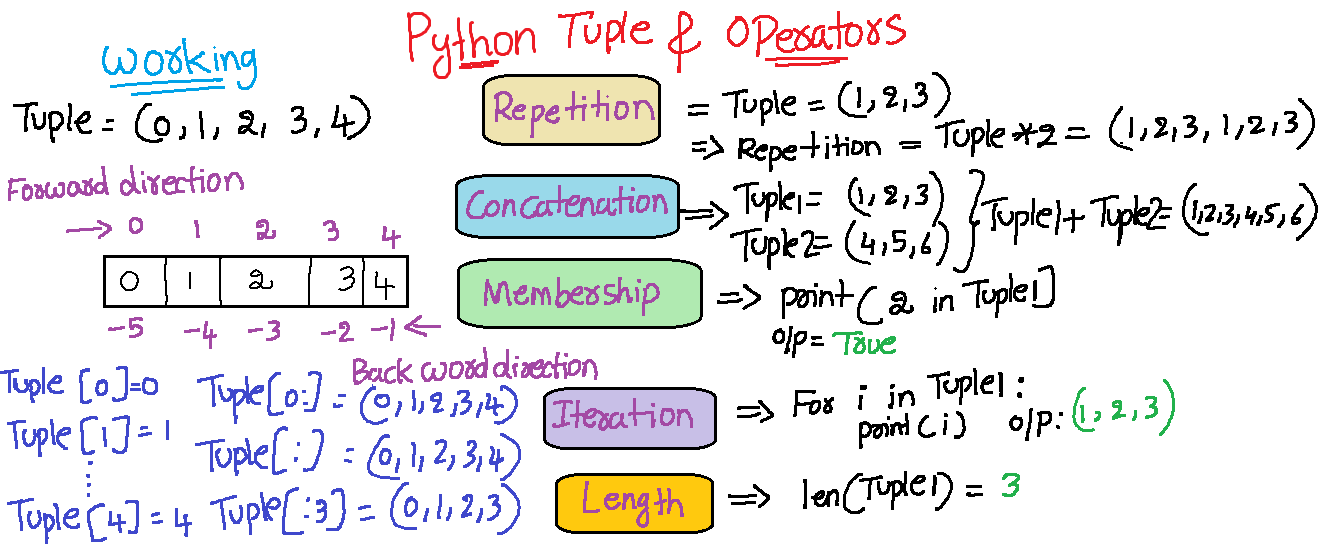 Python Tuple & Operators
Working
Tuple = (0, 1, 2, 3, 4)
Forward direction
→ 0 1 2 3 4
0 1 2 3 4
-5 -4 -3 -2 -1 ←
Back word direction
Tuple [0]=0
Tuple [1] = 1
Tuple [4] = 4
Tuple[0:] = (0, 1, 2, 3, 4)
Tuple[:] = (0, 1, 2, 3, 4)
Tuple[:3] = (0, 1, 2, 3)
Repetition = Tuple = (1, 2, 3)
=> Repetition = Tuple *2 = (1, 2, 3, 1, 2, 3)
Concatenation => Tuple1 = (1, 2, 3)
Tuple2 = (4, 5, 6)
} Tuple1 + Tuple2 = (1,2,3,4,5,6)
Membership => print( 2 in Tuple1]
o/p = True
Iteration => For i in Tuple1 :
print(i) o/p: (1, 2, 3)
Length => len(Tuple1) = 3